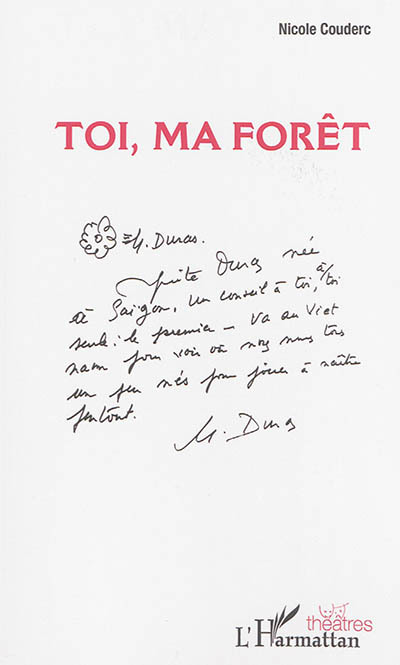 Nicole Couderc
TOI, MA FORÊT
M. Duras.
Duras née
à Saigon, un conseil à toi, à toi
seul : le premier – va au Viet
nam pour voir où nous nous
un peu nés pour jouer à naître
partout.
M. Duras
théâtres
L'Harmattan